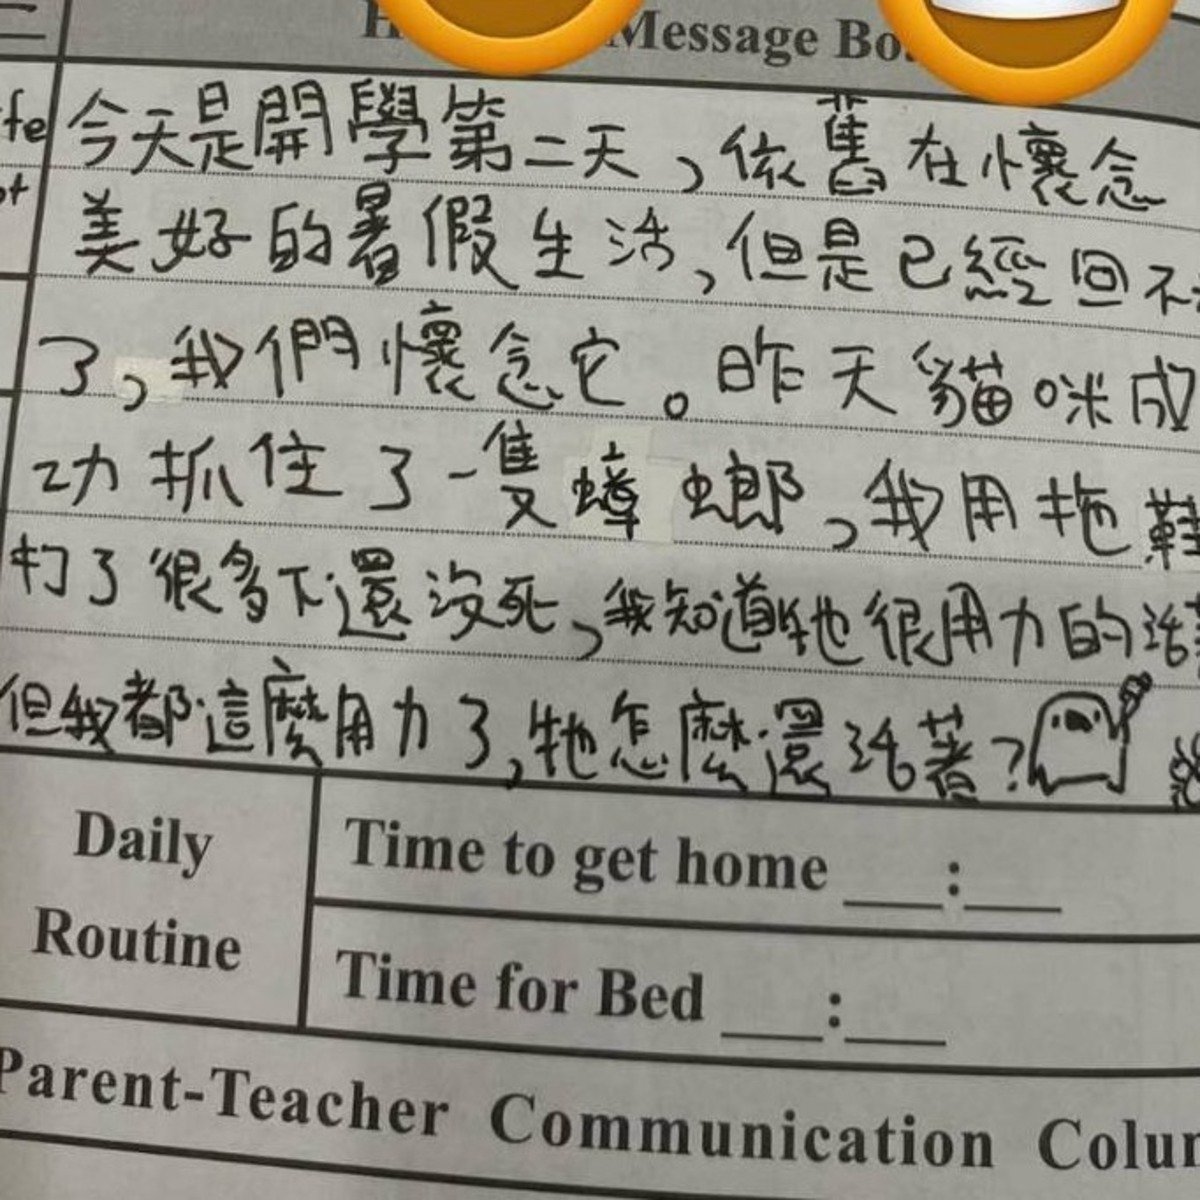 Message
今天是開學第二天，依舊在懷念
美好的暑假生活，但是已經回不
了，我們懷念它。昨天貓咪成
功抓住了一隻蟑螂，我用拖鞋
打了很多下還沒死，我知道牠很用力的活
但我都這麼用力了，牠怎麼還活著？
Daily
Routine
Time to get home ___:___
Time for Bed ___:___
Parent-Teacher Communication